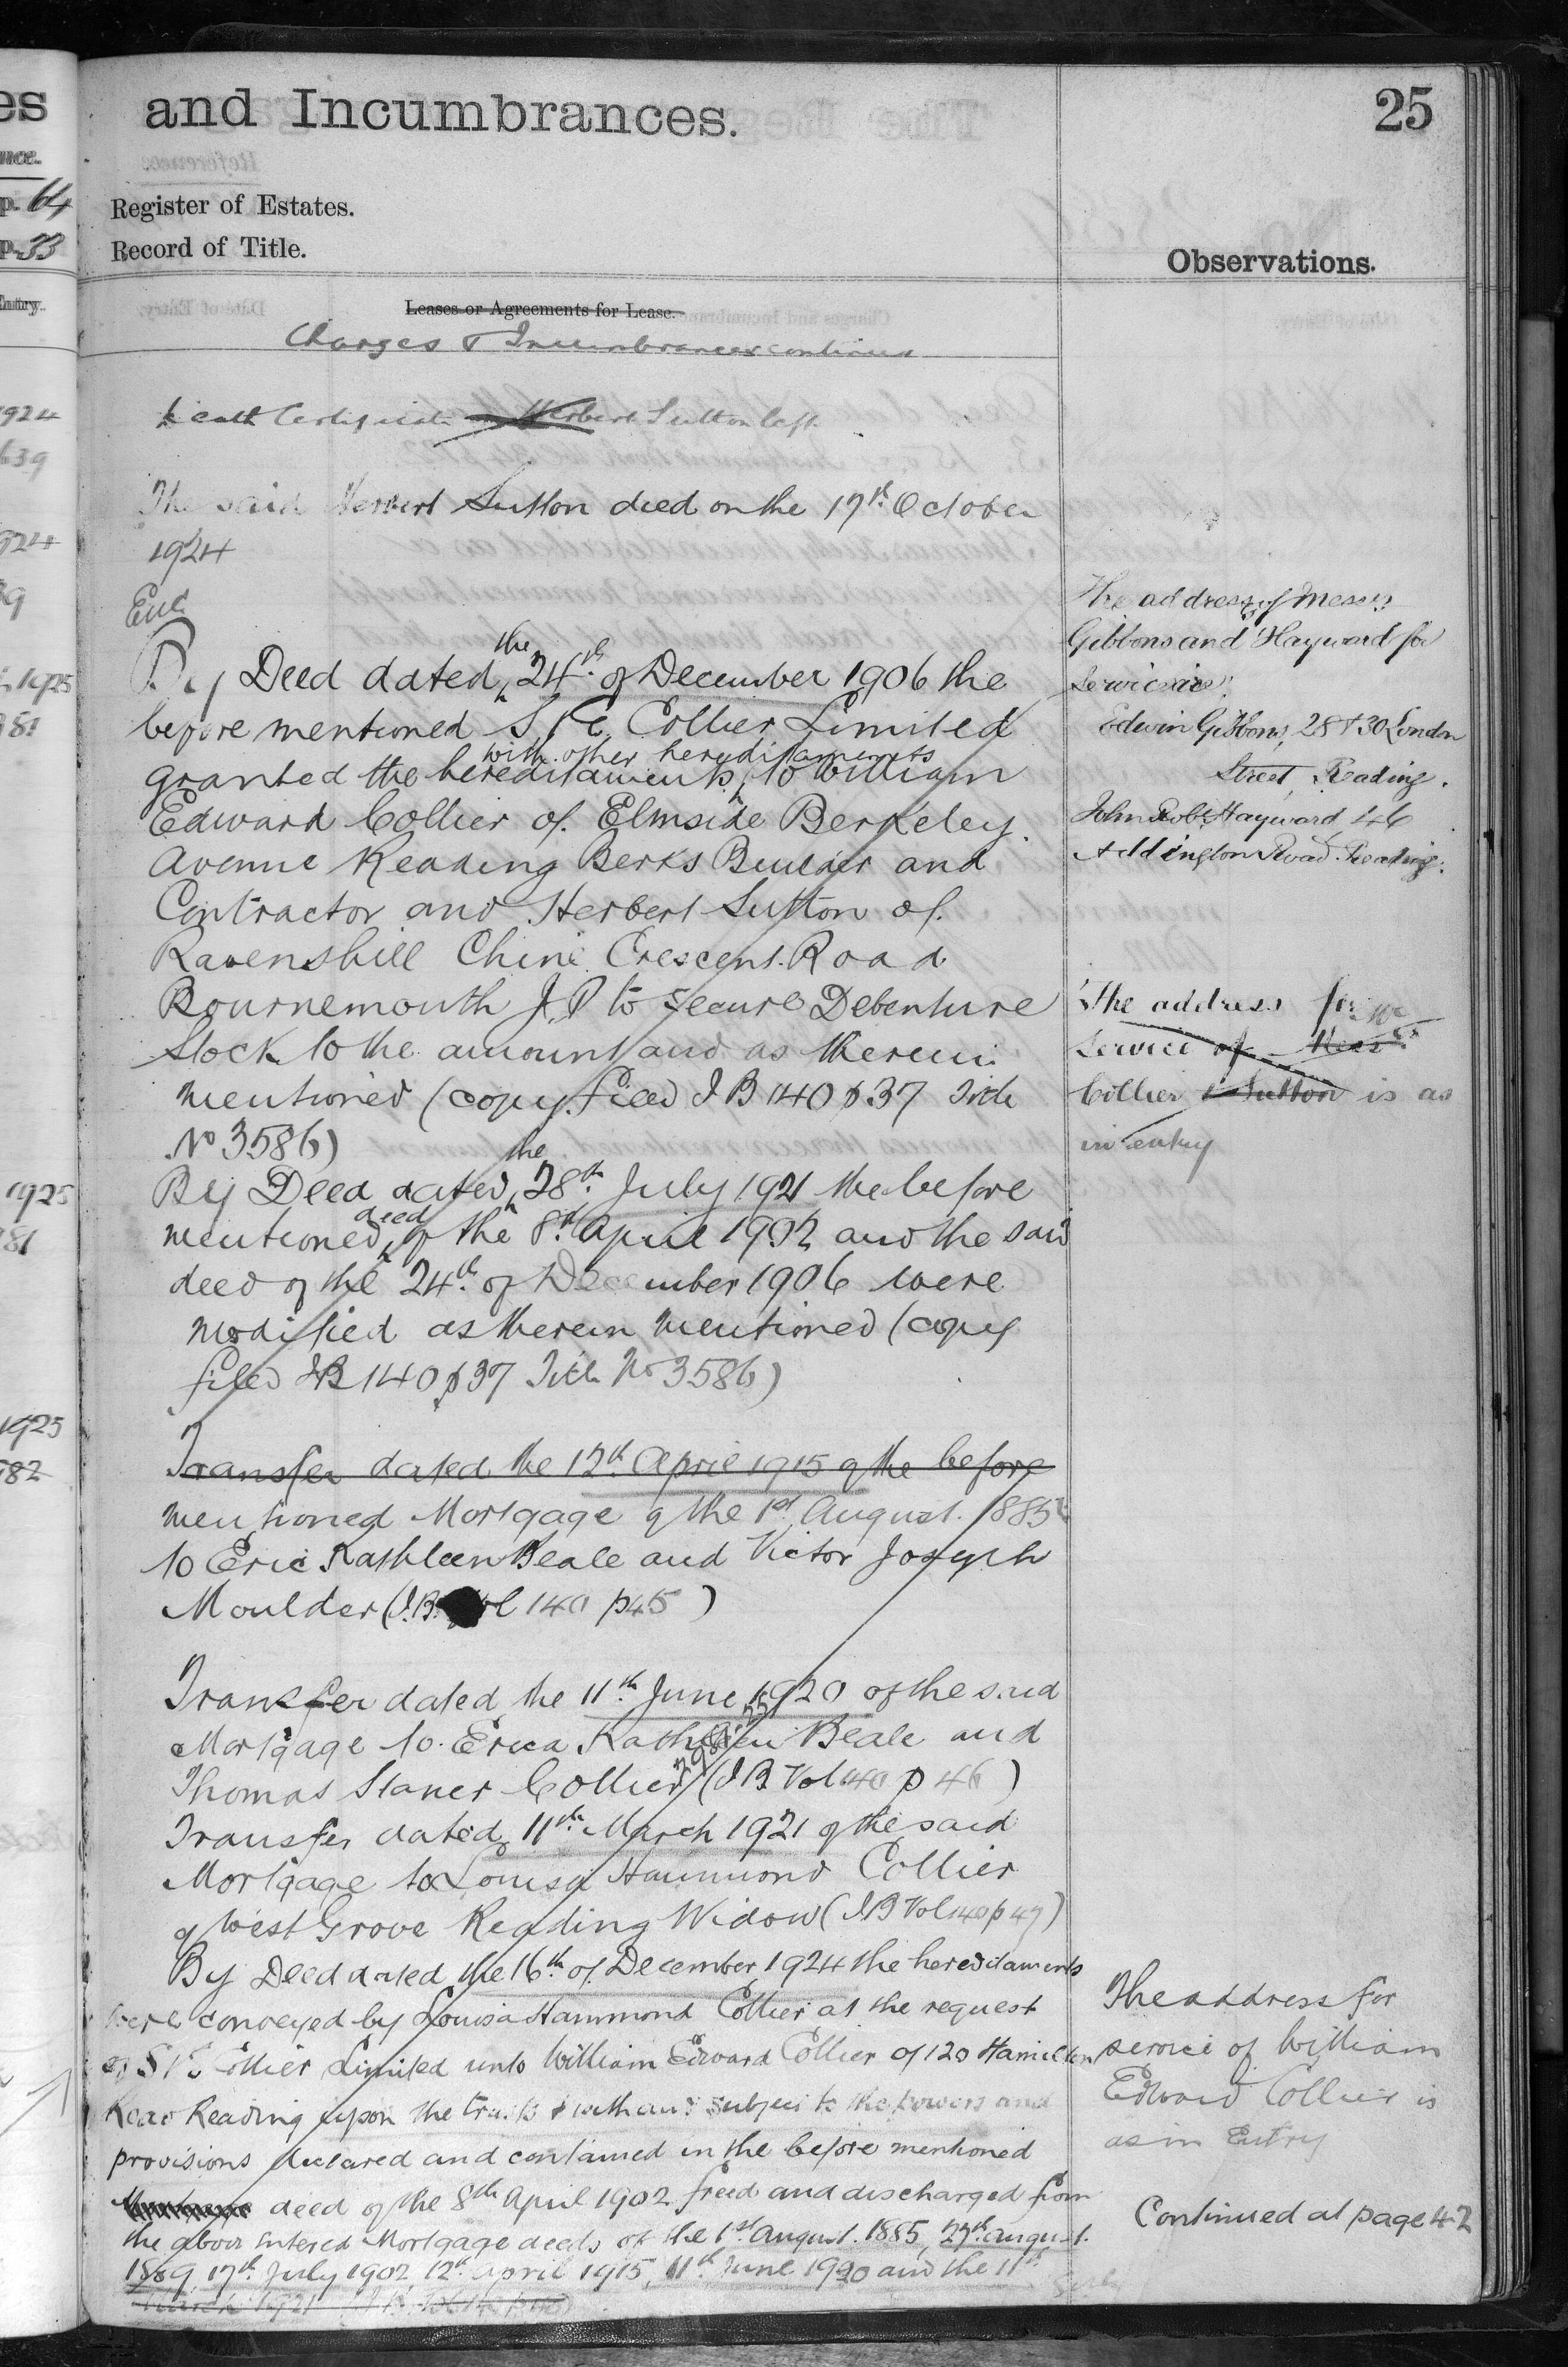 and Incumbrances.
25
Register of Estates.
Record of Title.
Observations.
Leases or Agreements for Lease.
Charges & Incumbrances continued
Death Certificate Herbert Sutton
The said Herbert Sutton died on the 17th October
1924
By Deed dated the 24th of December 1906 the
before mentioned S. & E. Collier Limited
granted the hereditaments with other hereditaments to William
Edward Collier of Elmside Berkeley
Avenue Reading Berks Builder and
Contractor and Herbert Sutton of
Ravenshill Chine Crescent Road
Bournemouth J.P to secure Debenture
Stock to the amount and as therein
mentioned (copy filed I B 140 p 37 Title
No 3586)
By Deed dated the 28th July 1921 the before
mentioned deed of the 8th April 1902 and the said
deed of the 24th of December 1906 were
modified as therein mentioned (copy
filed I B 140 p 37 Title No 3586)
Transfer dated the 12th April 1915 of the before
mentioned Mortgage of the 1st August 1885
to Eric Kathleen Beale and Victor Joseph
Moulder (I.B. Vol 140 p45)
Transfer dated the 11th June 1920 of the said
Mortgage to Erica Kathleen Beale and
Thomas Slaner Collier (I B Vol 140 p 46)
Transfer dated 11th March 1921 of the said
Mortgage to Louisa Hammond Collier
of West Grove Reading Widow (I B Vol 140 p 47)
By Deed dated the 16th of December 1924 the hereditaments
were conveyed by Louisa Hammond Collier at the request
of S & E Collier Limited unto William Edward Collier of 120 Hamilton
Road Reading upon the trusts & with and subject to the powers and
provisions declared and contained in the before mentioned
deed of the 8th April 1902 freed and discharged from
the above entered Mortgage deeds of the 1st August 1885, 27th August
1889, 17th July 1902 12th April 1915, 11th June 1920 and the 11th
March 1921
The address of Messrs
Gibbons and Hayward for
Service is:
Edwin Gibbons, 28 & 30 London
Street, Reading.
John Robt Hayward, 146
Addington Road Reading.
The address for
service of Mr Messrs
Collier & Sutton is as
in entry
The address for
service of William
Edward Collier is
as in Entry
Continued at page 42
es
nce.
p. 64
p. 33
Entry.
1924
639
924
1925
981
1925
981
1925
982